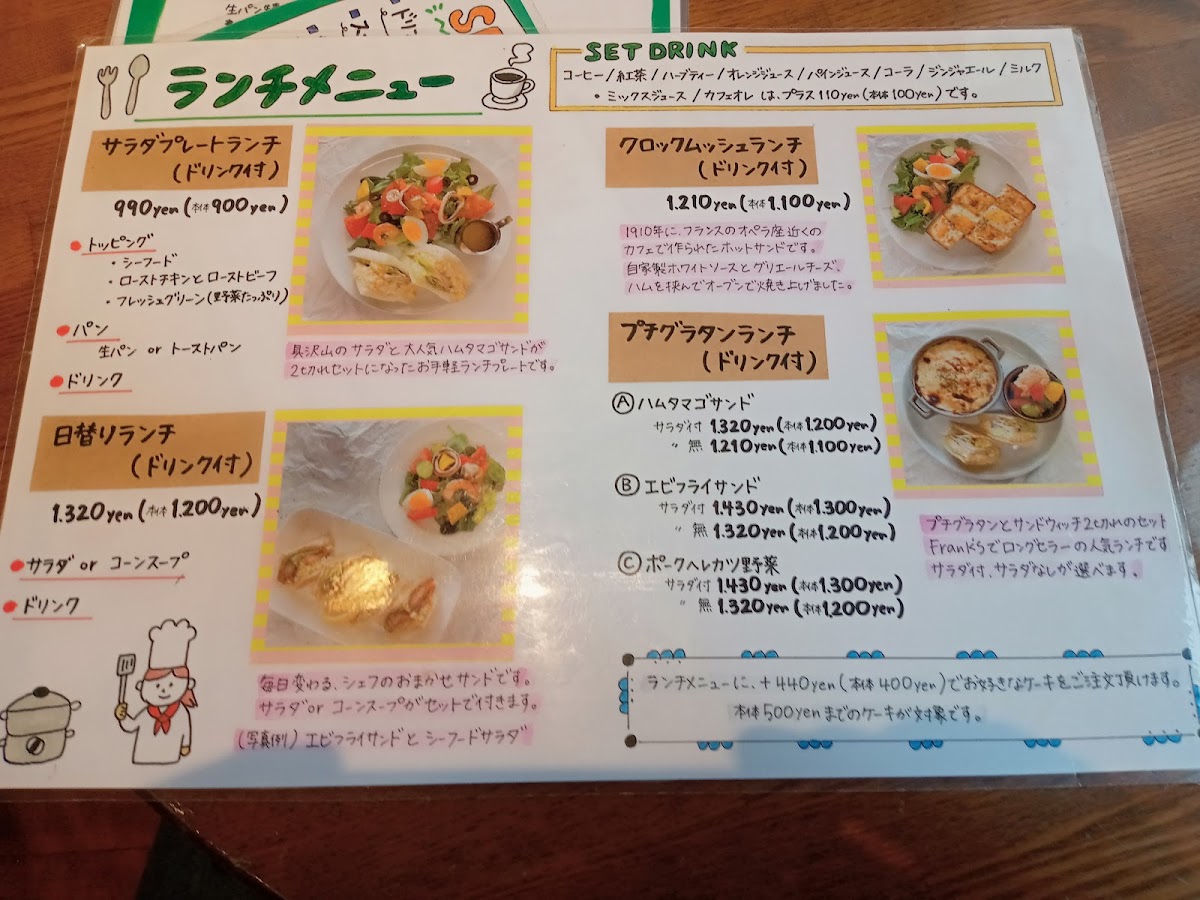 生パン
ランチメニュー
SET DRINK
コーヒー/紅茶/ハーブティー/オレンジジュース/パインジュース/コーラ/ジンジャエール/ミルク
・ミックスジュース / カフェオレ は、プラス110yen(本体100yen)です。
サラダプレートランチ
(ドリンク付)
990yen(本体900yen)
トッピング
・シーフード
・ローストチキンとローストビーフ
・フレッシュグリーン(野菜たっぷり)
パン
生パン or トーストパン
ドリンク
具沢山のサラダと大人気ハムタマゴサンドが
2切れセットになったお手軽ランチプレートです。
日替りランチ
(ドリンク付)
1.320yen(本体1.200yen)
サラダ or コーンスープ
ドリンク
毎日変わる、シェフのおまかせサンドです。
サラダ or コーンスープがセットで付きます。
(写真例) エビフライサンドとシーフードサラダ
クロックムッシュランチ
(ドリンク付)
1.210yen(本体1.100yen)
1910年に、フランスのオペラ座近くの
カフェで作られたホットサンドです。
自家製ホワイトソースとグリエールチーズ、
ハムを挟んでオーブンで焼き上げました。
プチグラタンランチ
(ドリンク付)
Ⓐ ハムタマゴサンド
サラダ付 1.320yen(本体1.200yen)
〃 無 1.210yen(本体1.100yen)
Ⓑ エビフライサンド
サラダ付 1.430yen(本体1.300yen)
〃 無 1.320yen(本体1.200yen)
Ⓒ ポークヘレカツ野菜
サラダ付 1.430yen(本体1.300yen)
〃 無 1.320yen(本体1.200yen)
プチグラタンとサンドウィッチ2切れのセット
Frank'sでロングセラーの人気ランチです
サラダ付、サラダなしが選べます。
ランチメニューに、+440yen(本体400yen)でお好きなケーキをご注文頂けます。
本体500yenまでのケーキが対象です。